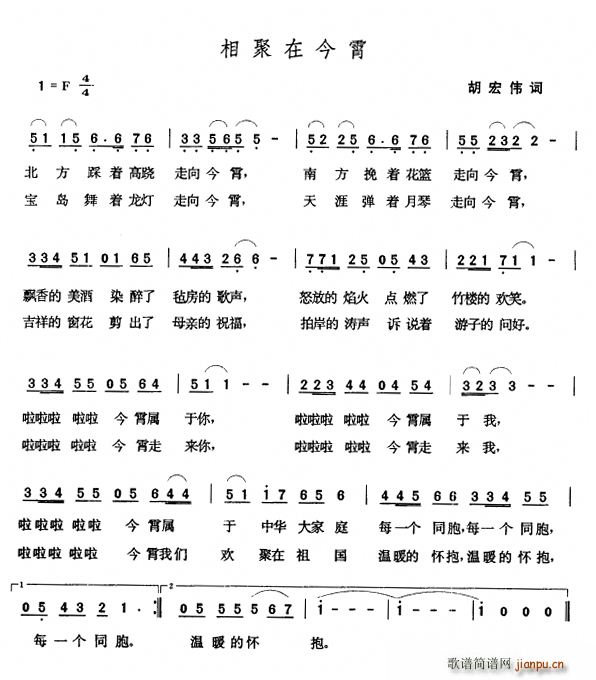 相聚在今霄
1=F 4/4 胡宏伟词
51 15 6.6 76 | 33 565 5 - | 52 25 6.6 76 | 55 232 2 - |
北方踩着高跷 走向今霄, 南方挽着花篮 走向今霄,
宝岛舞着龙灯 走向今霄, 天涯弹着月琴 走向今霄,
334 51 01 65 | 443 26 6 - | 771 25 05 43 | 221 71 1 - |
飘香的美酒 染醉了 毡房的歌声, 怒放的焰火 点燃了 竹楼的欢笑。
吉祥的窗花 剪出了 母亲的祝福, 拍岸的涛声 诉说着 游子的问好。
334 55 05 64 | 51 1 - - | 223 44 05 54 | 323 3 - - |
啦啦啦 啦啦 今霄属 于你, 啦啦啦 啦啦 今霄属 于我,
啦啦啦 啦啦 今霄走 来你, 啦啦啦 啦啦 今霄走 来我,
334 55 05 644 | 51 i7 65 6 | 445 66 334 55 |
啦啦啦 啦啦 今霄属 于 中华 大家庭 每一个 同胞,每一个 同胞,
啦啦啦 啦啦 今霄我们 欢 聚在 祖国 温暖的 怀抱,温暖的 怀抱,
1 2
05 43 21 · :|| 05 55 567 | i - - i | i - - - | i 0 0 0 ||
每一个同胞。 温暖的怀 抱。
歌谱简谱网
jianpu.cn